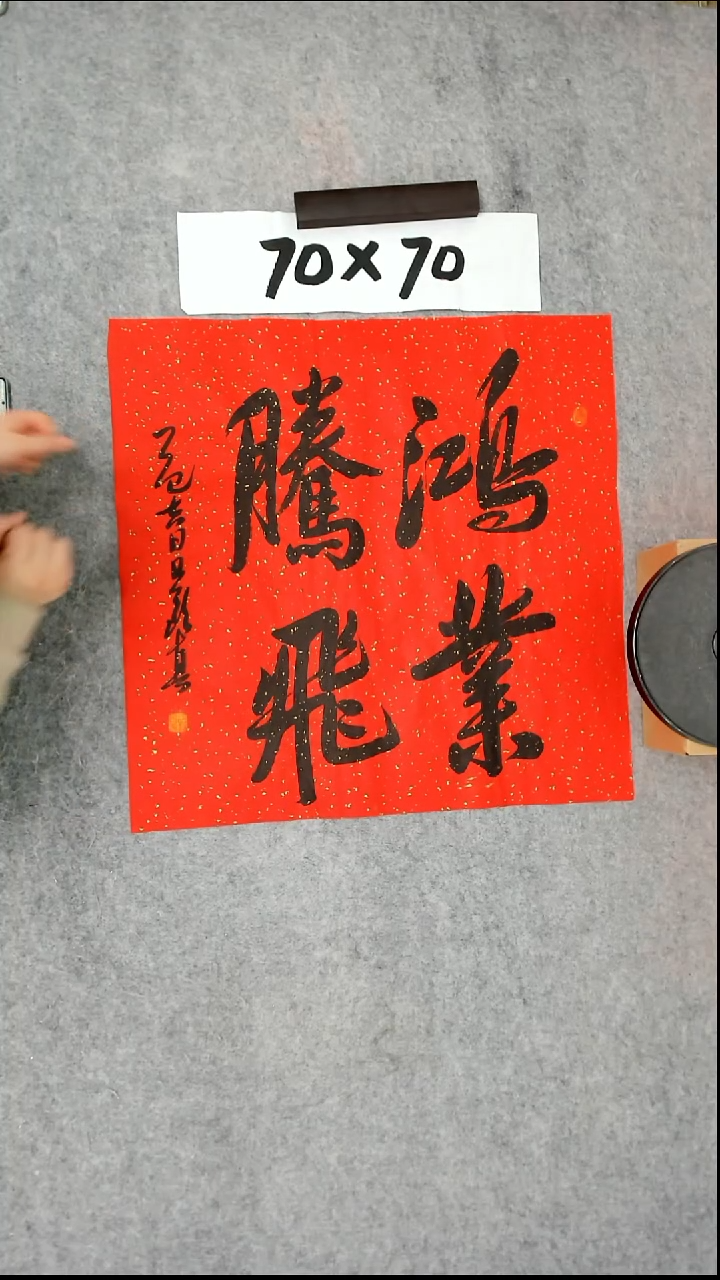 70×70
鴻業
騰飛
乙巳吉日